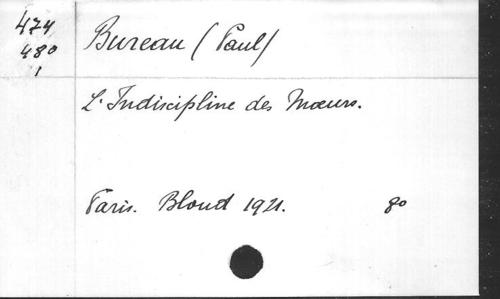 474
480
1
Bureau (Paul)
L'Indiscipline des Mœurs.
Paris. Bloud 1921. 8o